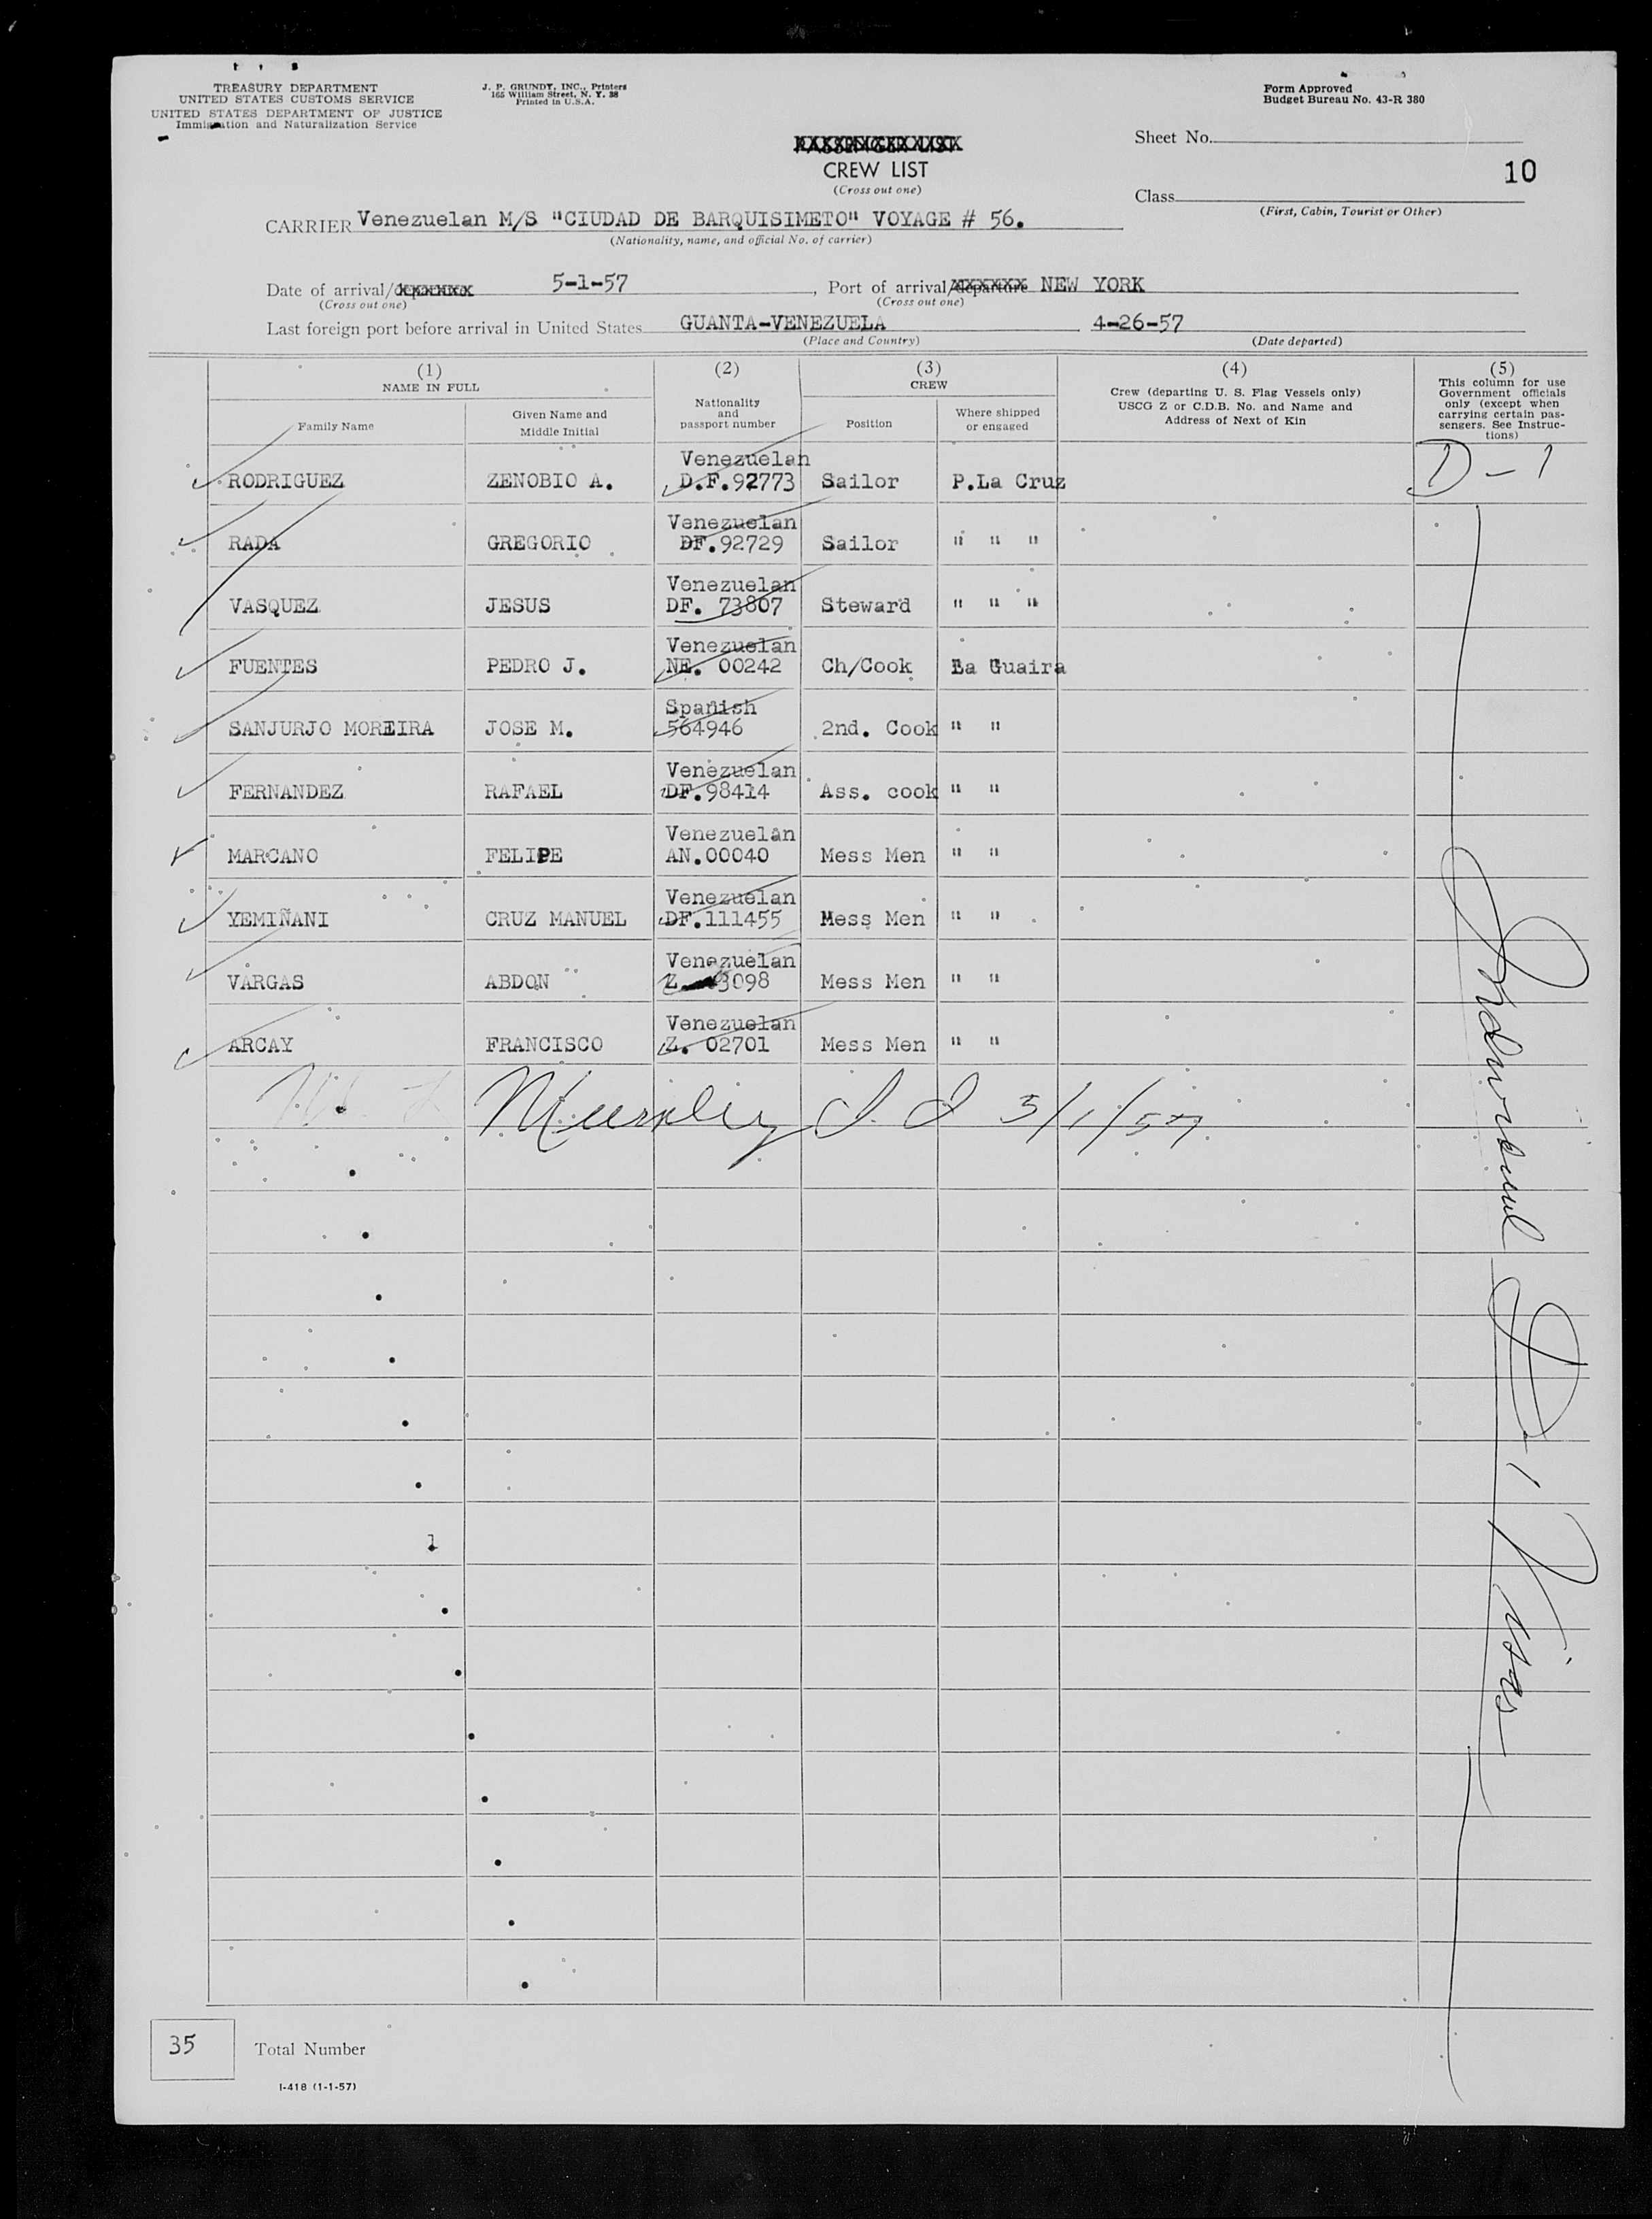 TREASURY DEPARTMENT
UNITED STATES CUSTOMS SERVICE
UNITED STATES DEPARTMENT OF JUSTICE
Immigration and Naturalization Service
J. P. GRUNDY, INC., Printers
165 William Street, N. Y. 38
Printed in U.S.A.
Form Approved
Budget Bureau No. 43-R 380
Sheet No.
10
PASSENGER LIST
CREW LIST
(Cross out one)
Class
(First, Cabin, Tourist or Other)
CARRIER Venezuelan M/S "CIUDAD DE BARQUISIMETO" VOYAGE # 56.
(Nationality, name, and official No. of carrier)
Date of arrival/departure 5-1-57, Port of arrival/departure NEW YORK
(Cross out one) (Cross out one)
Last foreign port before arrival in United States GUANTA-VENEZUELA 4-26-57
(Place and Country) (Date departed)
(1) (2) (3) (4) (5)
NAME IN FULL
Family Name
Given Name and
Middle Initial
Nationality
and
passport number
CREW
Position
Where shipped
or engaged
Crew (departing U. S. Flag Vessels only)
USCG Z or C.D.B. No. and Name and
Address of Next of Kin
This column for use
Government officials
only (except when
carrying certain pas-
sengers. See Instruc-
tions)
Venezuelan
RODRIGUEZ ZENOBIO A. D.F.92773 Sailor P.La Cruz D-1
Venezuelan
RADA GREGORIO DF.92729 Sailor " " "
Venezuelan
VASQUEZ JESUS DF. 73807 Steward " " "
Venezuelan
FUENTES PEDRO J. NE. 00242 Ch/Cook La Guaira
Spanish
SANJURJO MOREIRA JOSE M. 564946 2nd. Cook " "
Venezuelan
FERNANDEZ RAFAEL DF.98414 Ass. cook " "
Venezuelan
MARCANO FELIPE AN.00040 Mess Men " "
Venezuelan
YEMIÑANI CRUZ MANUEL DF.111455 Mess Men " "
Venezuelan
VARGAS ABDON Z. 3098 Mess Men " "
Venezuelan
ARCAY FRANCISCO Z. 02701 Mess Men " "
5/1/57
35 Total Number
I-418 (1-1-57)